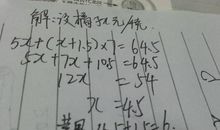 解:设橘子x元/千克.
5x+(x+1.5)×7=64.5
5x+7x+10.5=64.5
12x=54
x=4.5
4.5+1.5=6